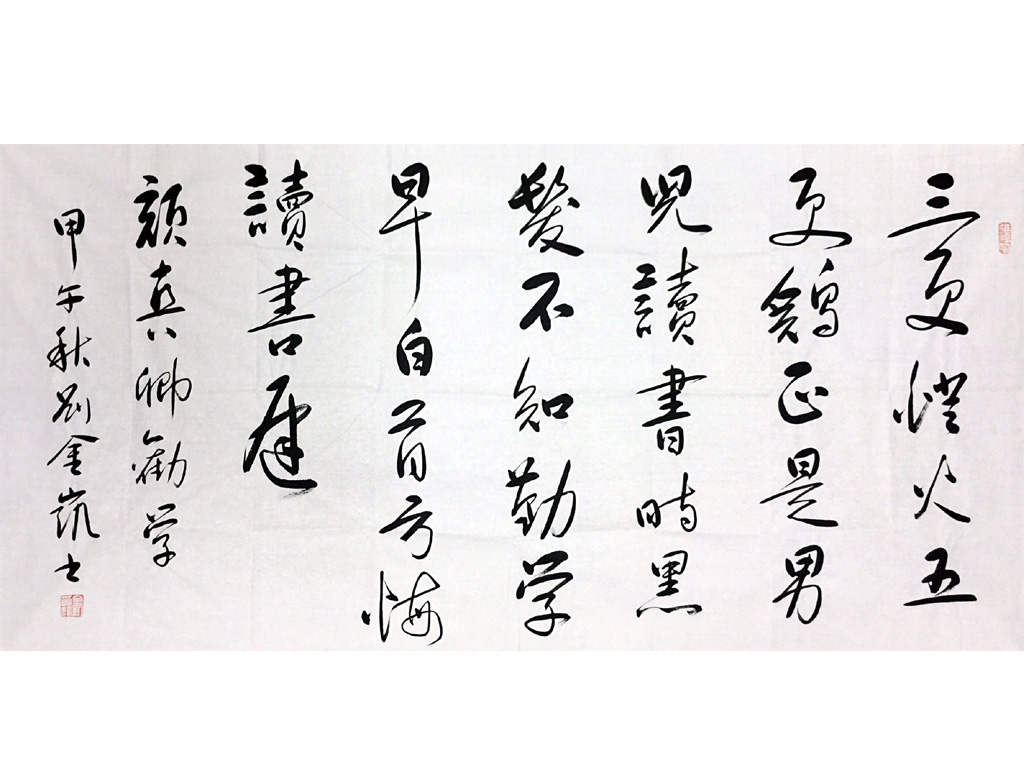 三更燈火五
更鷄正是男
児讀書時黑
髮不知勤学
早白首方悔
讀書遲
顔真卿勸学
甲午秋劉金凱书